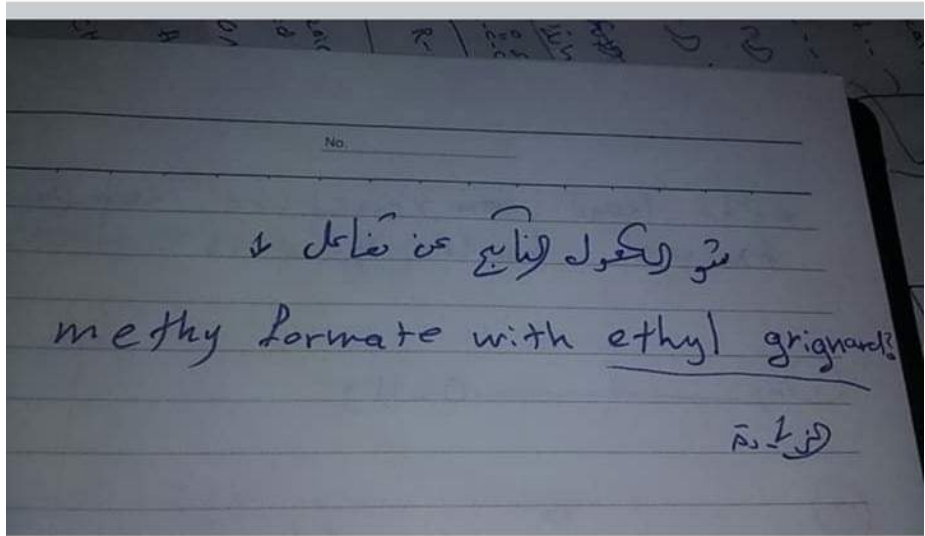 No.
شو الكحول الناتج عن تفاعل
methy formate with ethyl grignard?
الزيادة